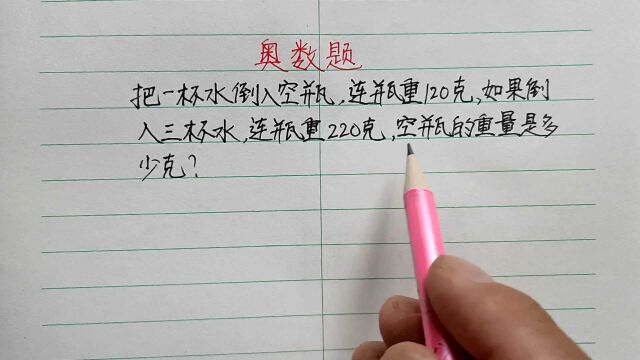 奥数题
把一杯水倒入空瓶,连瓶重120克,如果倒
入三杯水,连瓶重220克,空瓶的重量是多
少克?